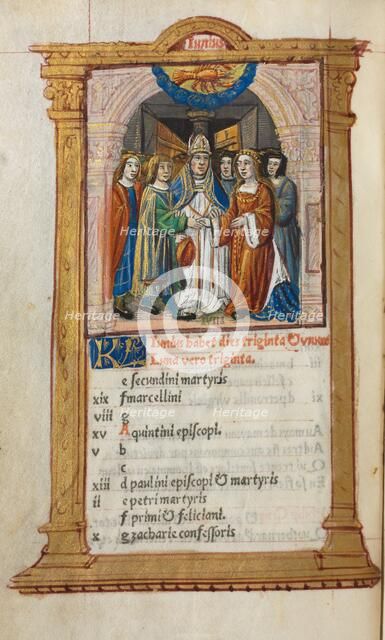 Iunius
Iunius habet dies triginta & unum
Luna vero triginta.
KL
e secundini martyris
xix f marcellini
viii g
xv A quintini episcopi.
v b
c
xiii d paulini episcopi & martyris
ii e petri martyris
f primi & feliciani.
x g zacharie confessoris
Heritage
Heritage
Heritage
Heritage
Heritage
Heritage
Heritage